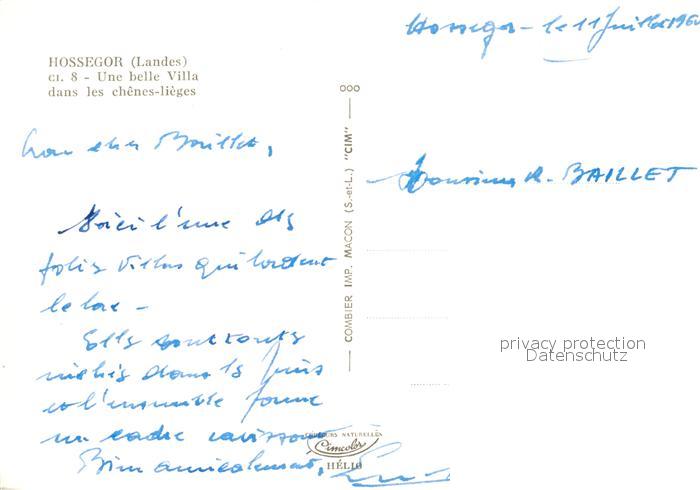 Hossegor - le 11 Juillet 196
HOSSEGOR (Landes)
CI. 8 - Une belle Villa
dans les chênes-lièges
Mon cher Baillet,
Monsieur R. BAILLET
Voici l'une des
jolies villas qui bordent
le lac -
Elles sont toutes
nichées dans les pins
et l'ensemble forme
un cadre ravissant
Bien amicalement,
COMBIER IMP. MACON (S.-et-L.) "CIM"
COULEURS NATURELLES
Cimcolor
HÉLIO
privacy protection
Datenschutz